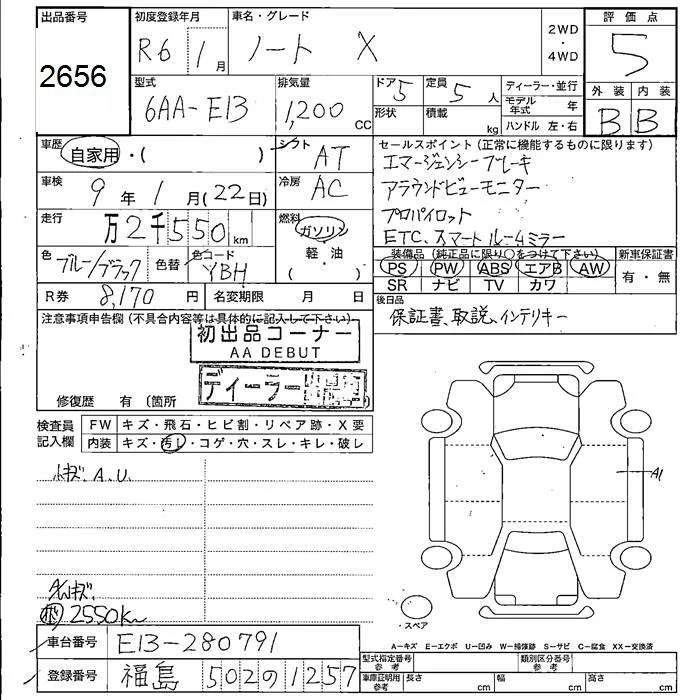 出品番号
2656
初度登録年月
R6 1月
車名・グレード
ノート X
2WD
・
4WD
評価点
5
外装 内装
B B
型式
6AA-E13
排気量
1,200 CC
ドア 5
定員 5人
形状
積載 kg
ディーラー・並行
モデル年式 年
ハンドル 左・右
車歴
自家用・( )
シフト
AT
車検
9年1月(22日)
冷房
AC
走行
万2千550km
燃料
ガソリン
軽・油
( ・ )
色
ブルー/ブラック
色替
色コード
YBH
R券 8,170円
名変期限 月 日
セールスポイント(正常に機能するものに限ります)
エマージェンシーブレーキ
アラウンドビューモニター
プロパイロット
ETC、スマートルームミラー
装備品(純正品に限り○をつけて下さい)
PS PW ABS エアB AW
SR ナビ TV カワ
新車保証書
有・無
後日品
保証書、取説、インテリキー
注意事項申告欄(不具合内容等は具体的に記入して下さい)
初出品コーナー
AA DEBUT
ディーラー
修復歴 有 〔箇所
検査員
記入欄
FW キズ・飛石・ヒビ割・リペア跡・X要
内装 キズ・汚れ・コゲ・穴・スレ・キレ・破レ
小キズ、A.U.
A1
2550km
スペア
A-キズ E-エクボ U-凹み W-補修跡 S-サビ C-腐食 XX-交換済
車台番号 E13-280791
登録番号 福島 502の1257
型式指定番号
参考
類別区分番号
参考
車庫証明用
参考
長さ cm 幅 cm 高さ cm